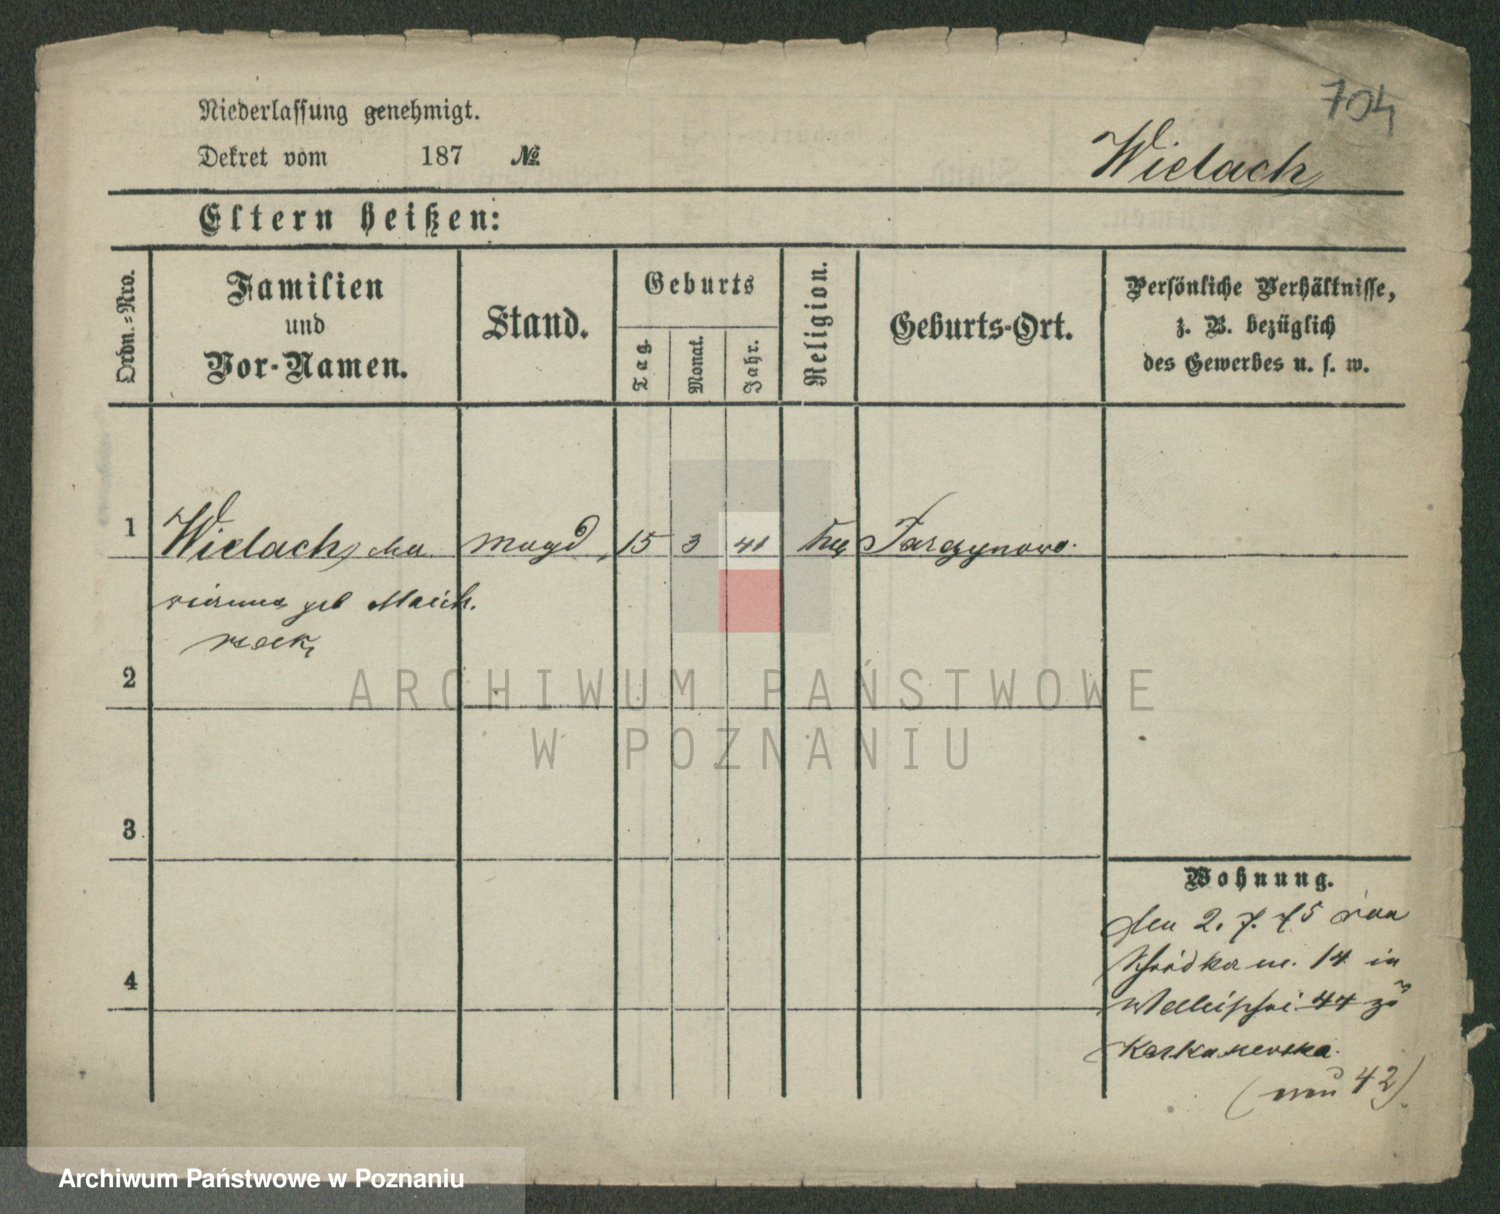 704
Niederlassung genehmigt.
Dekret vom 187 №
Wielach
Eltern heißen:
Ordn.-Nro.
Familien
und
Vor-Namen.
Stand.
Geburts
Tag.
Monat.
Jahr.
Religion.
Geburts-Ort.
Persönliche Verhältnisse,
z. B. bezüglich
des Gewerbes u. s. w.
1 Wielach, Ma Magd 15 3 41
rianna geb
2
3
4
Wohnung.
Den 2. 7. 75 von
Schrodka 14 in
Wallischei 44 zu
(nun 42)
ARCHIWUM PAŃSTWOWE
W POZNANIU
Archiwum Państwowe w Poznaniu